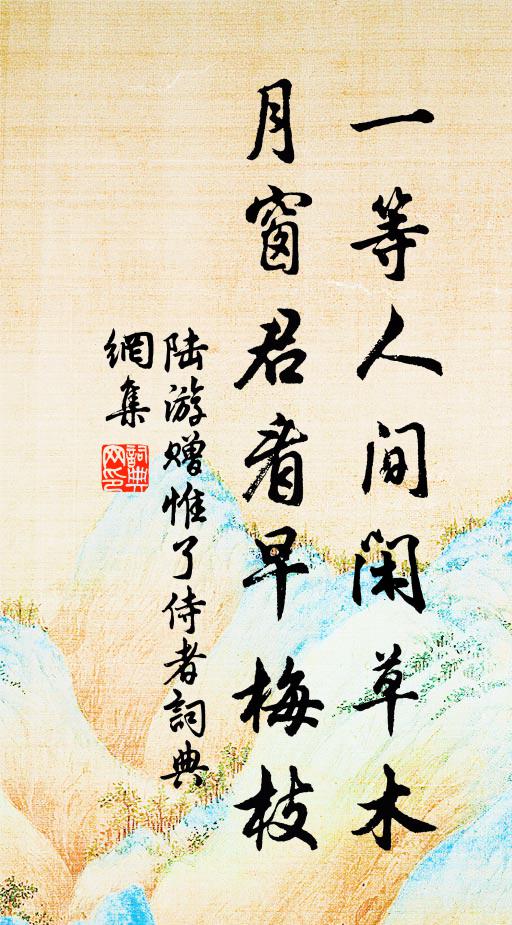 一等人间闲草木
月窗君看早梅枝
陆游赠惟了侍者詞典
網集
詞典網印